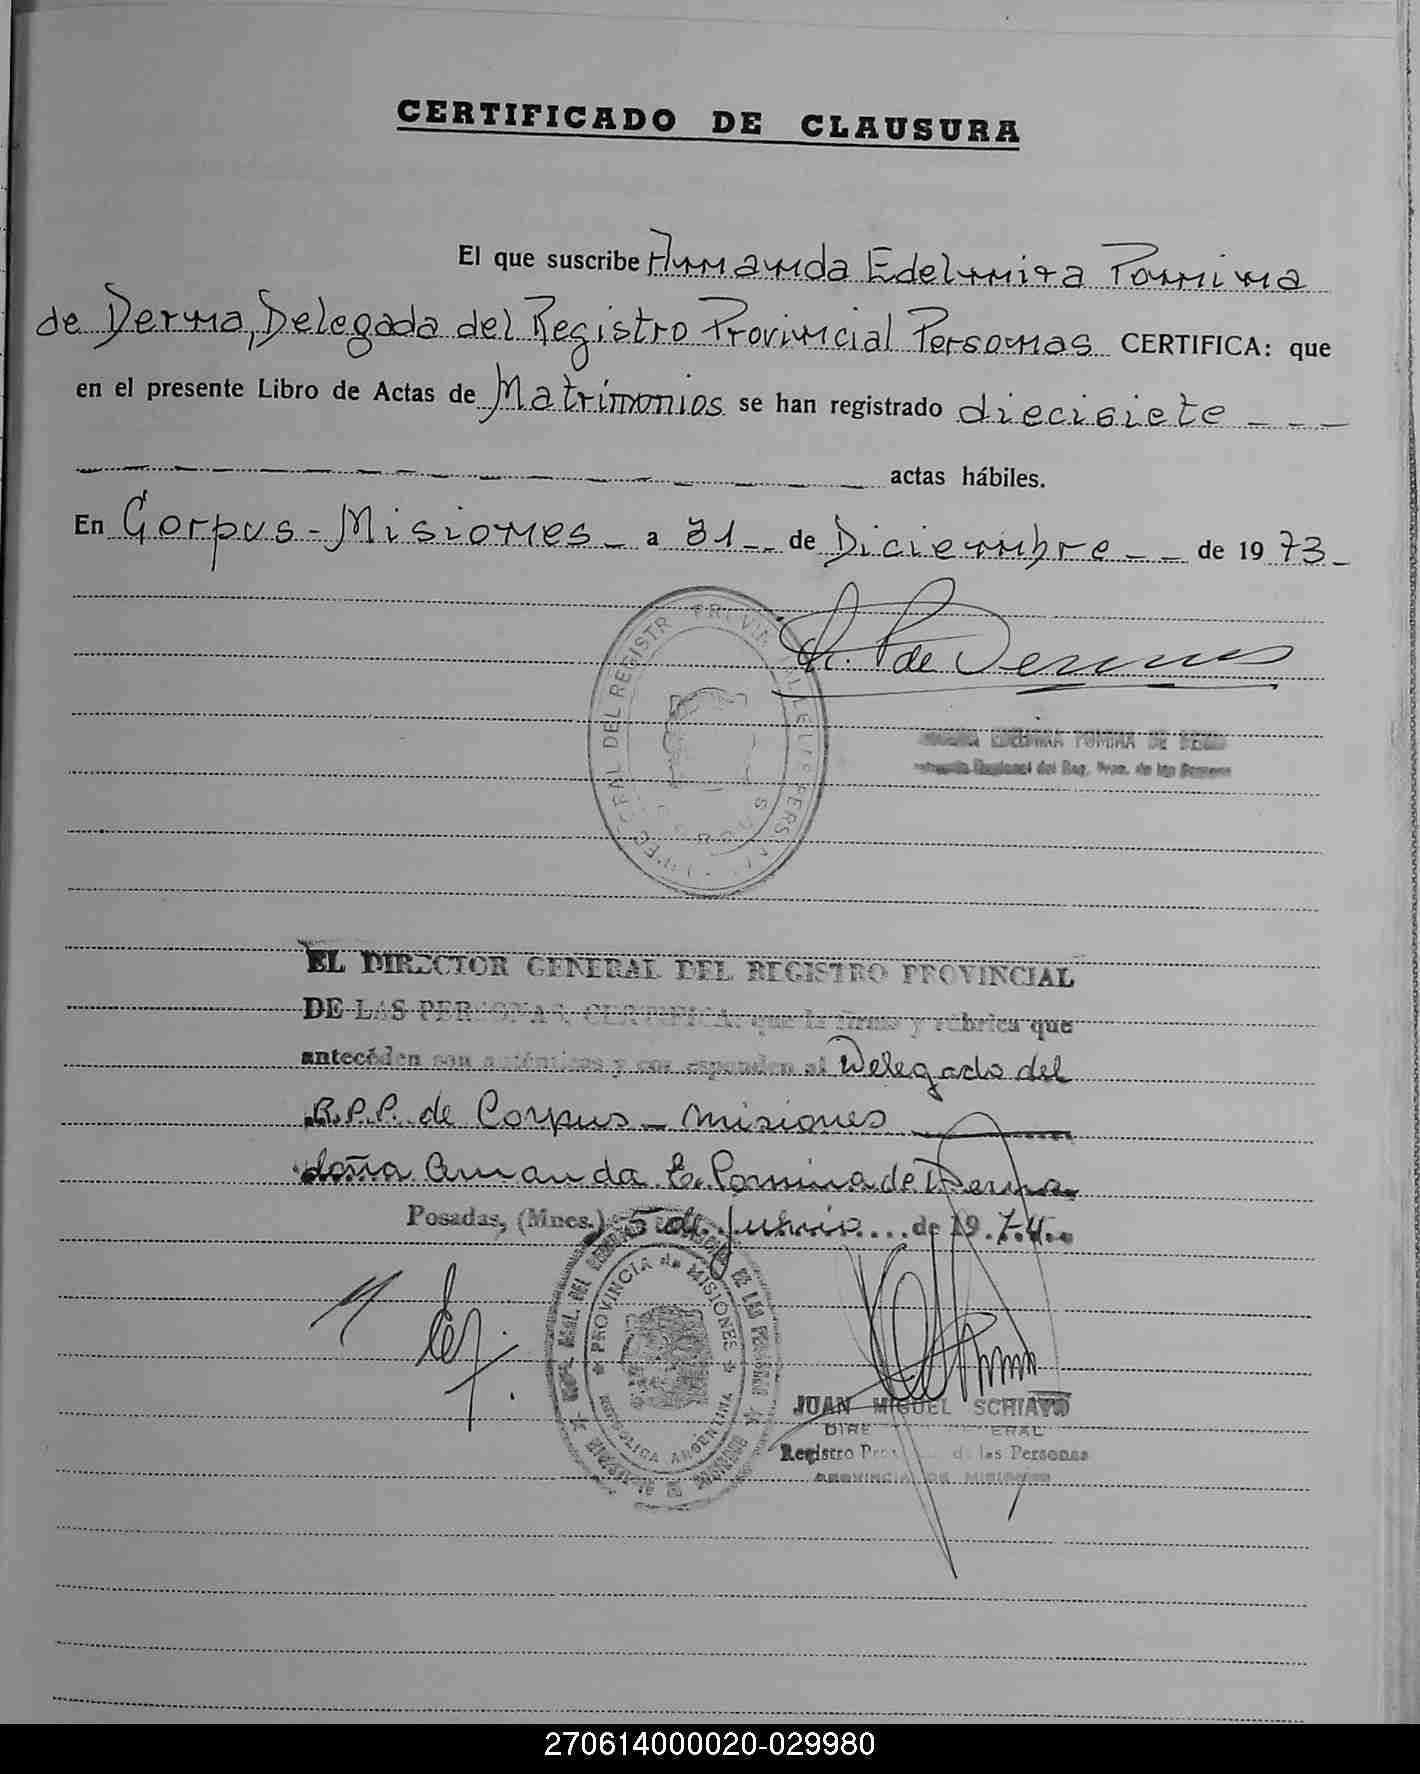 CERTIFICADO DE CLAUSURA
El que suscribe Amanda Edelmira Pomina
de Derna, Delegada del Registro Provincial Personas CERTIFICA: que
en el presente Libro de Actas de Matrimonios se han registrado diecisiete - - -
actas hábiles.
En Corpus - Misiones - a 31 - - de Diciembre - - de 1973 -
A. P de Derna
EDELMIRA POMINA DE
Regional del Reg. Prov. de las Personas
EL DIRECTOR GENERAL DEL REGISTRO PROVINCIAL
DE LAS PERSONAS, CERTIFICA: que la firma y rúbrica que
antecéden son auténticas y corresponden al Delegado del
R.P.P. de Corpus - Misiones
doña Amanda E. Pomina de Derna
Posadas, (Mnes.) 5 de Junio de 1974
PROVINCIA de MISIONES
REPUBLICA ARGENTINA
JUAN MIGUEL SCHIAVO
DIRECTOR GENERAL
Registro Provincial de las Personas
PROVINCIA DE MISIONES
270614000020-029980